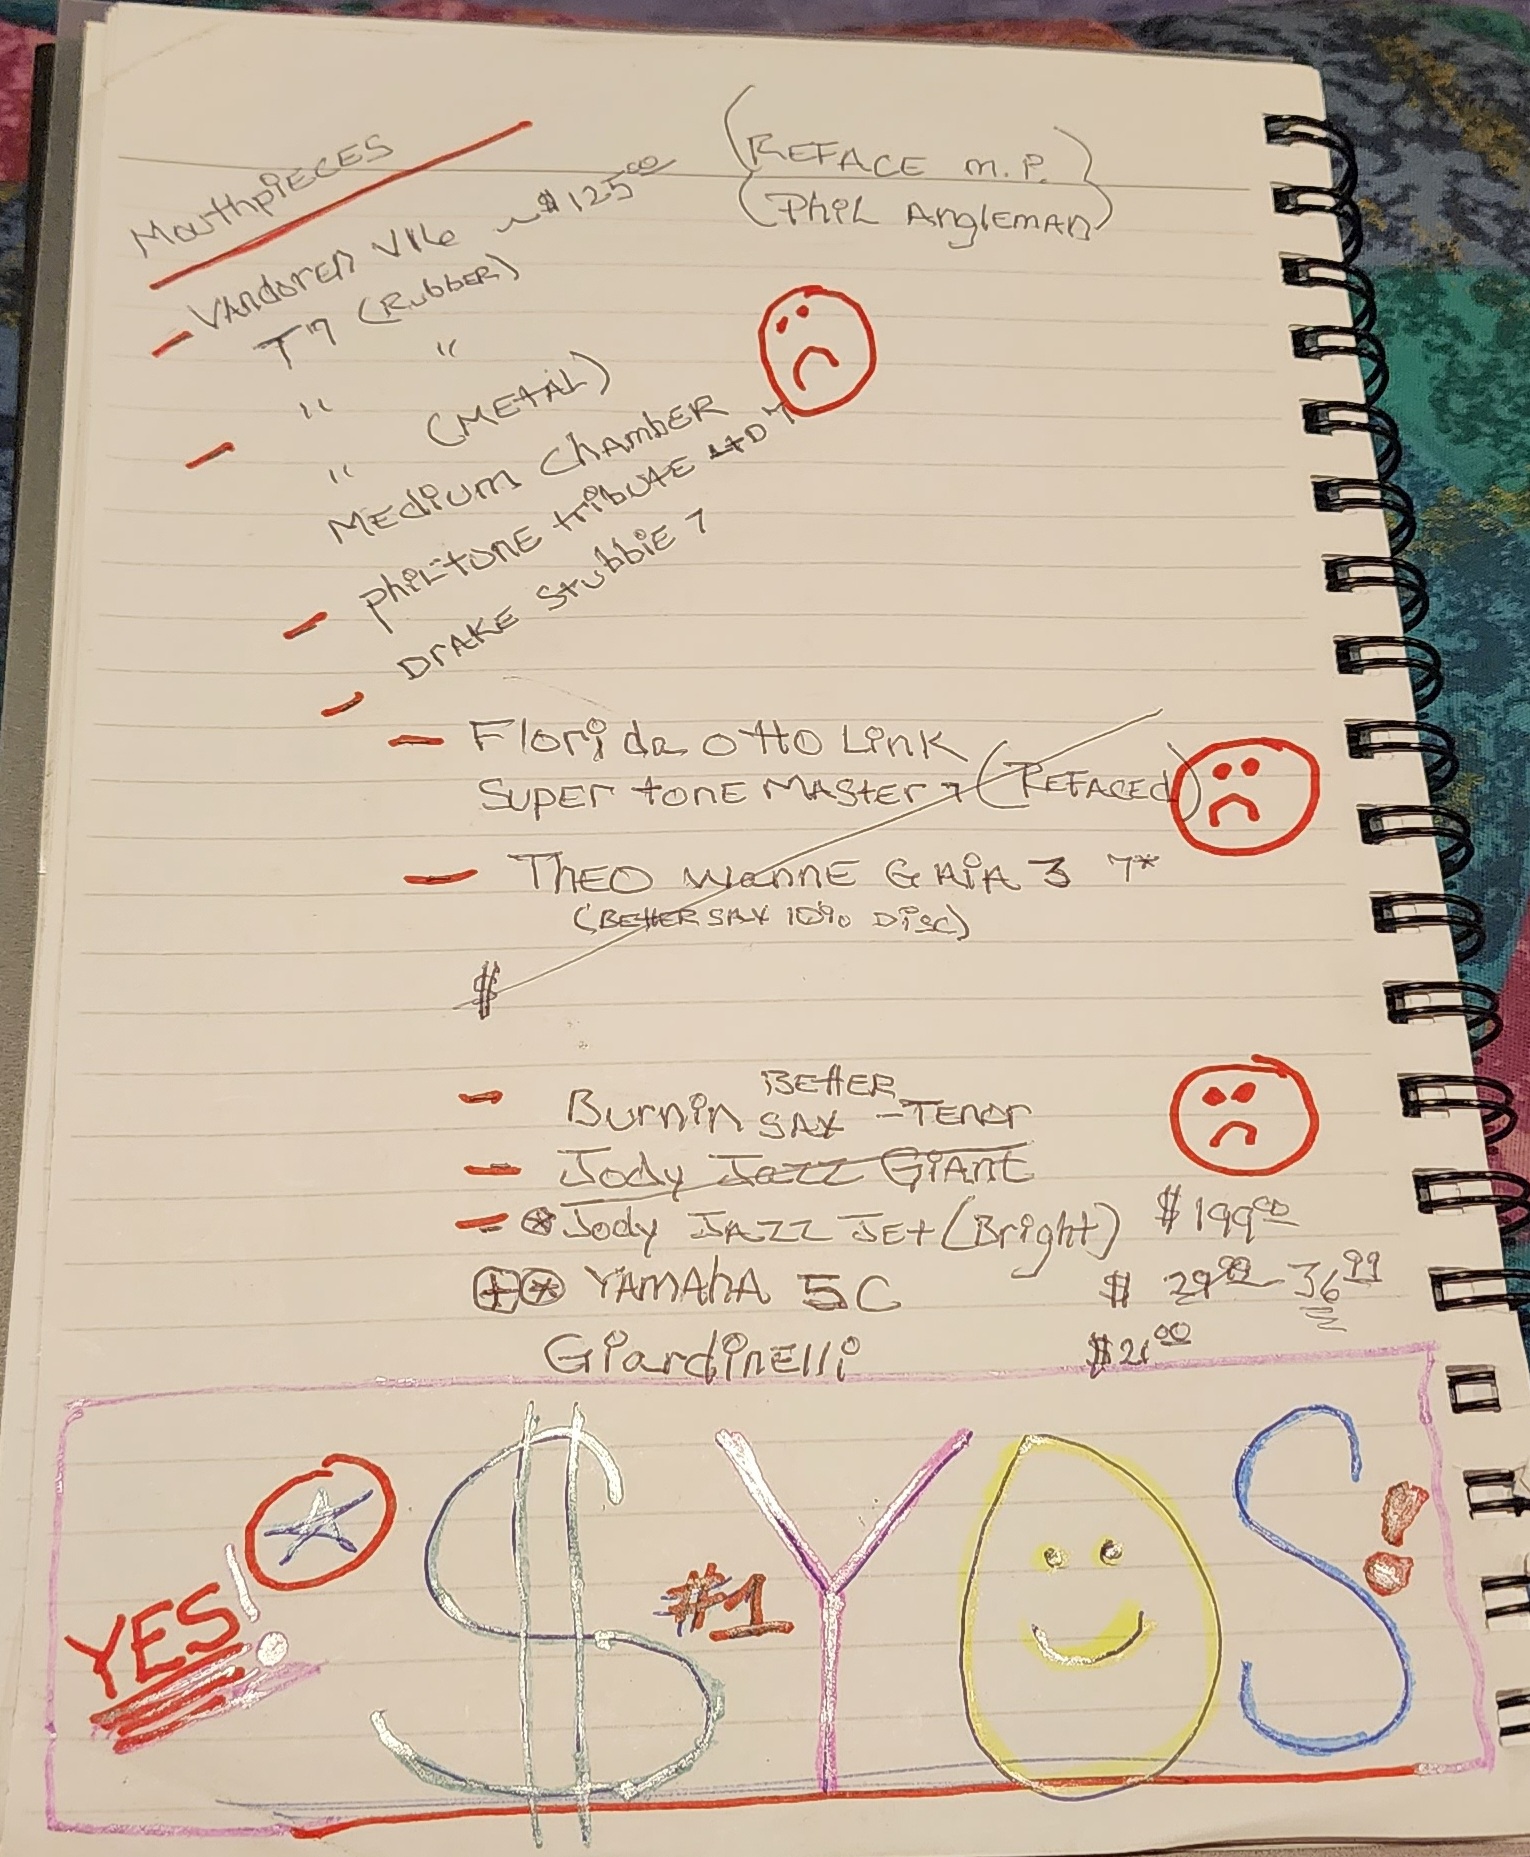 MouthpiECES
(REFACE m.P.)
(Phil Angleman)
- VAndoren V16 ~ $125.00
T7 (RubbER)
" "
" (METAL)
MEdium ChAmbER
- Phil-tone tributE LTD 7
- DrAKE Stubbie 7
- Florida Otto Link
Super tonE MAster 7 (REFACEd)
- ThEO WannE GAiA 3 7*
(BEttER SAX 10% Disc)
$
- Burnin BEttER SAX - TEnor
- Jody Jazz GiAnt
- Jody JAZZ JEt (Bright) $199.00
YAmAhA 5C $ 29.99 - 36.99
GiardinElli $21.00
YES! $ #1 YOS!